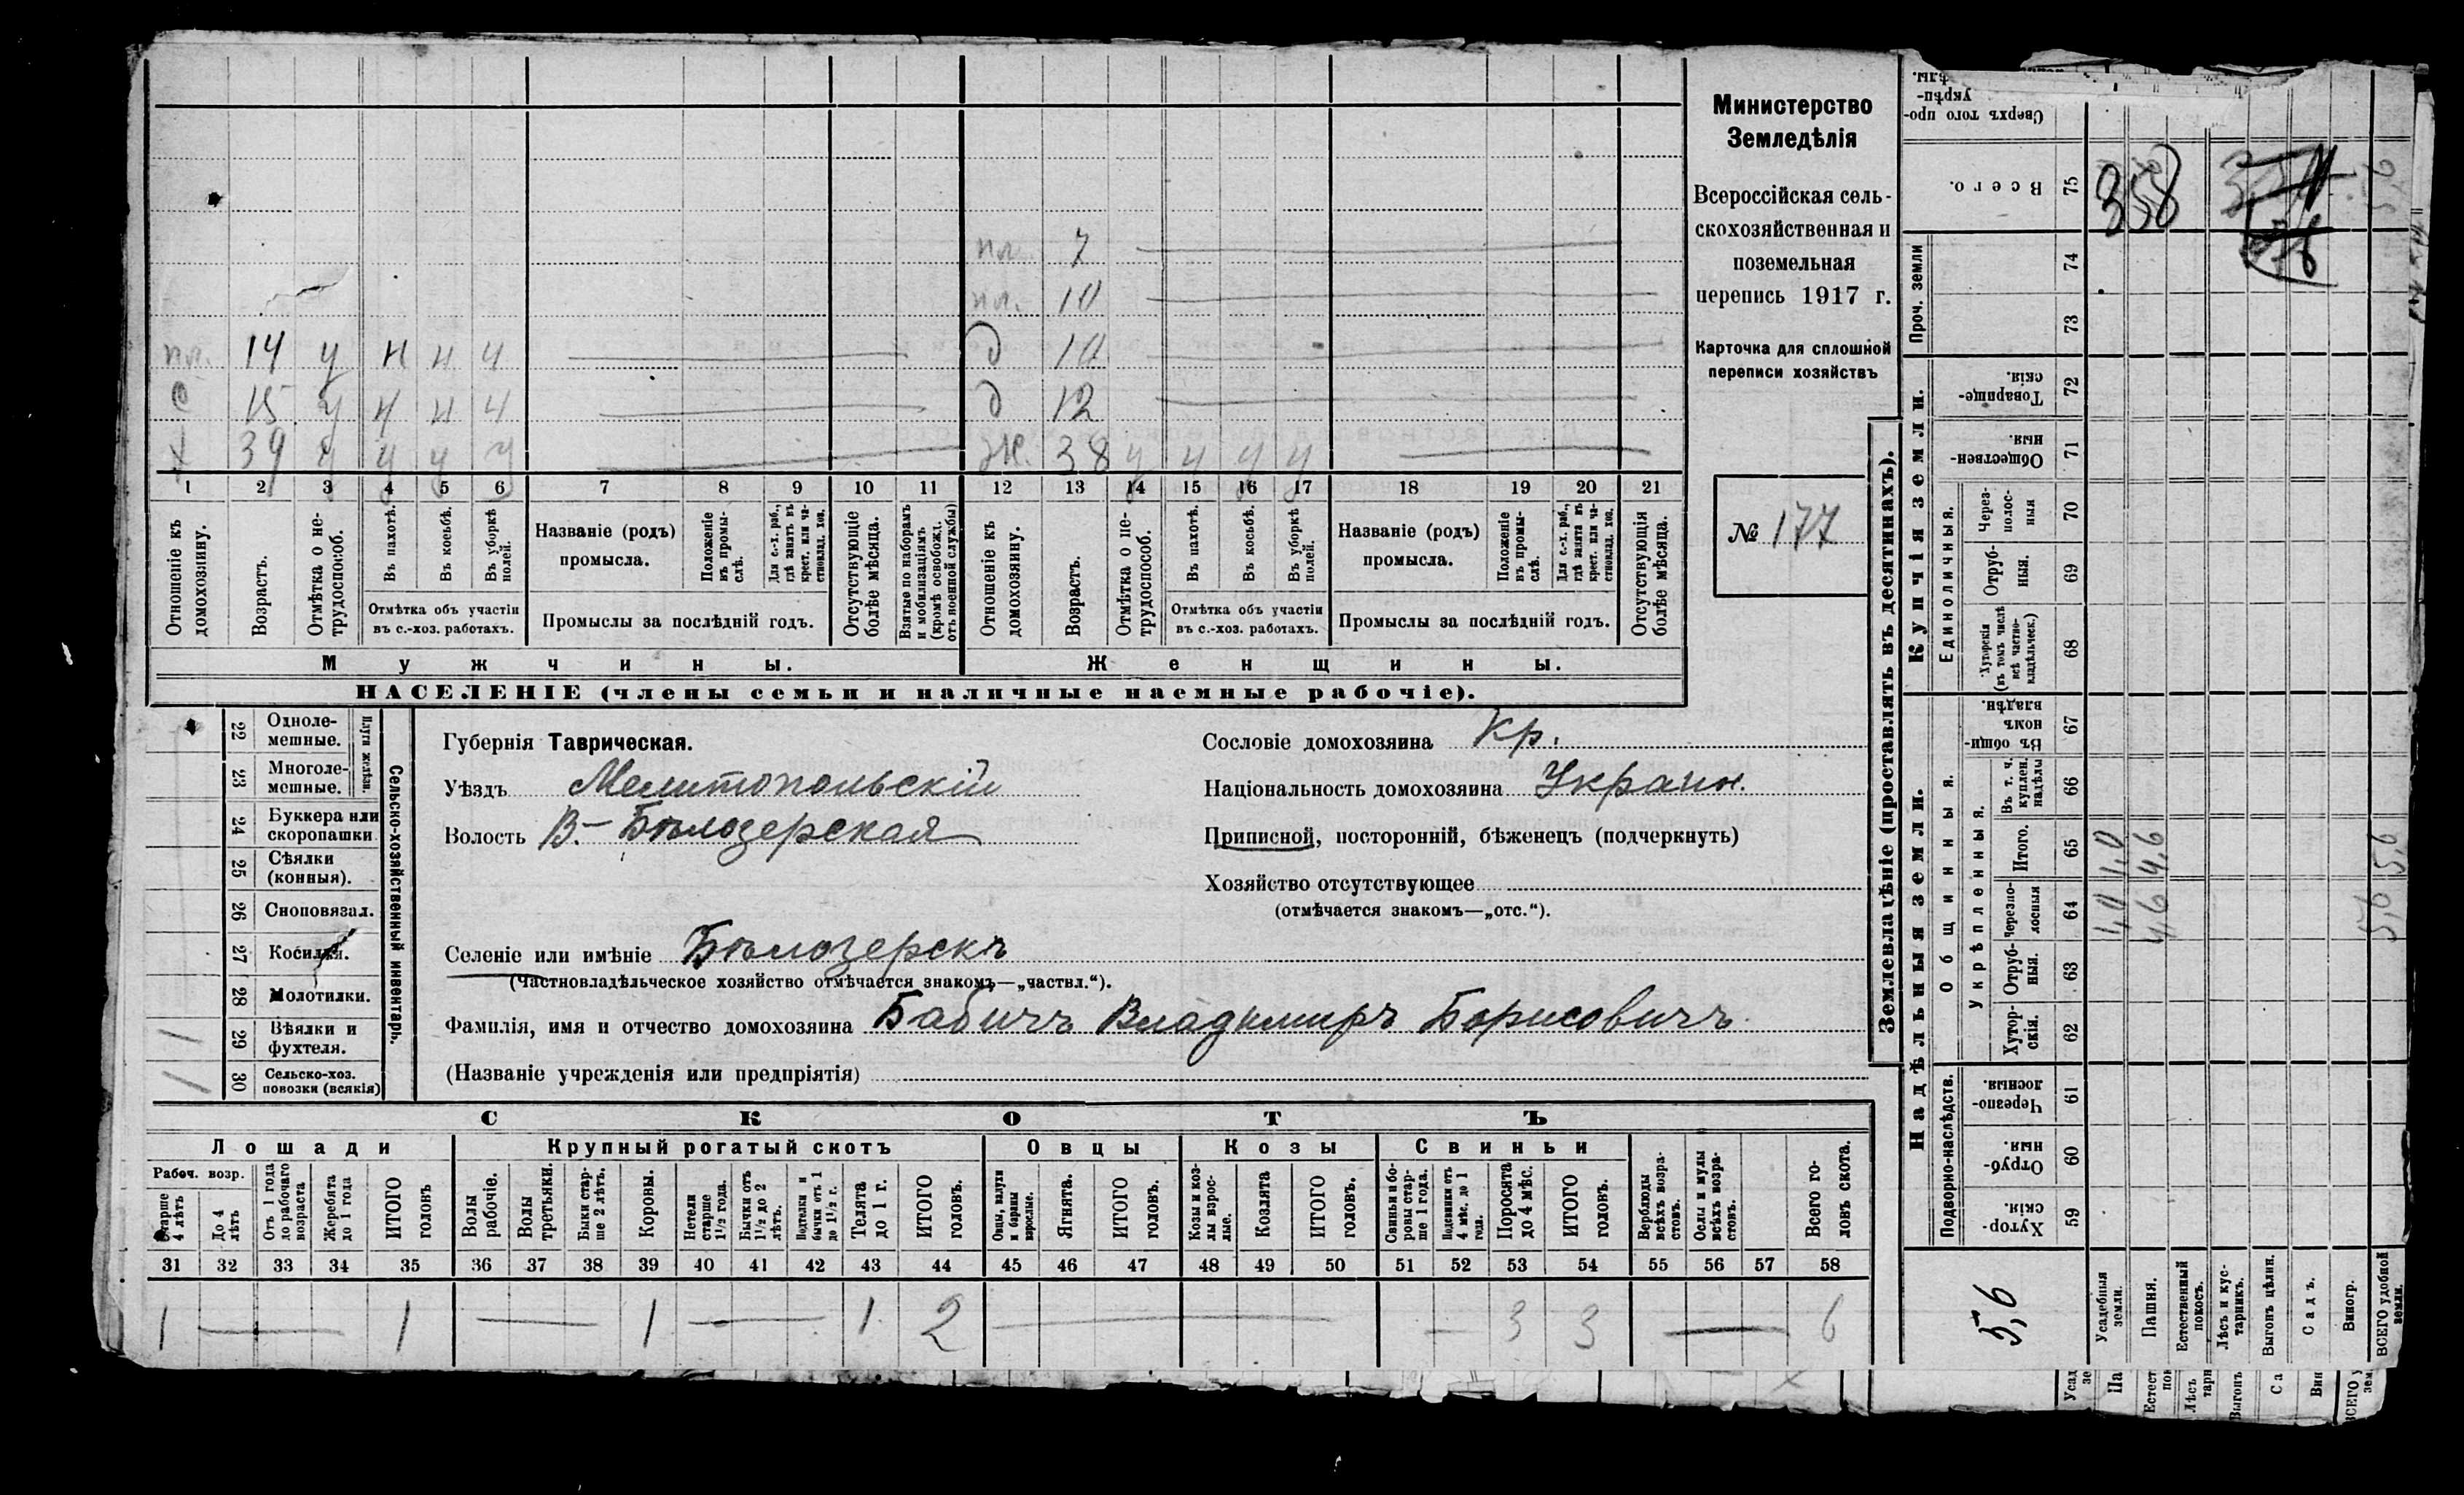 Министерство
Земледѣлія
Всероссійская сель-
скохозяйственная и
поземельная
перепись 1917 г.
Карточка для сплошной
переписи хозяйствъ
№ 177
пл. 7
пл. 10
пл. 14 у н н ч д 10
с 15 у н н ч д 12
х 39 у у у у ж. 38 у у у у
1 2 3 4 5 6 7 8 9 10 11 12 13 14 15 16 17 18 19 20 21
Отношеніе къ домохозяину.
Возрастъ.
Отмѣтка о не-трудоспособ.
Въ пахотѣ.
Въ косьбѣ.
Въ уборкѣ полей.
Отмѣтка объ участіи
въ с.-хоз. работахъ.
Названіе (родъ)
промысла.
Положеніе въ промы-слѣ.
Для с.-х. раб., гдѣ занятъ въ крест. или ча-стновлад. хоз.
Промыслы за послѣдній годъ.
Отсутствующіе болѣе мѣсяца.
Взятые по наборамъ и мобилизаціямъ (кромѣ освобожд. отъ военной службы)
Отношеніе къ домохозяину.
Возрастъ.
Отмѣтка о не-трудоспособ.
Въ пахотѣ.
Въ косьбѣ.
Въ уборкѣ полей.
Отмѣтка объ участіи
въ с.-хоз. работахъ.
Названіе (родъ)
промысла.
Положеніе въ промы-слѣ.
Для с.-х. раб., гдѣ занята въ крест. или ча-стновлад. хоз.
Промыслы за послѣдній годъ.
Отсутствующія болѣе мѣсяца.
Мужчины. Женщины.
НАСЕЛЕНІЕ (члены семьи и наличные наемные рабочіе).
22 Одноле-мешные.
23 Многоле-мешные.
Плуги желѣзн.
24 Буккера или скоропашки
25 Сѣялки (конныя).
26 Сноповязал.
27 Косилки.
28 Молотилки.
1 29 Вѣялки и фухтеля.
1 30 Сельско-хоз. повозки (всякія)
Сельско-хозяйственный инвентарь.
Губернія Таврическая.
Уѣздъ Мелитопольскій
Волость В.-Бѣлозерская
Сословіе домохозяина Кр.
Національность домохозяина Украин.
Приписной, посторонній, бѣженецъ (подчеркнуть)
Хозяйство отсутствующее
(отмѣчается знакомъ—„отс.“).
Селеніе или имѣніе Бѣлозерскъ
(Частновладѣльческое хозяйство отмѣчается знакомъ—„частвл.“).
Фамилія, имя и отчество домохозяина Бабичъ Владимиръ Борисовичъ
(Названіе учрежденія или предпріятія)
СКОТЪ
Лошади Крупный рогатый скотъ Овцы Козы Свиньи
Рабоч. возр.
Старше 4 лѣтъ
До 4 лѣтъ
Отъ 1 года до рабочаго возраста
Жеребята до 1 года
ИТОГО головъ
Волы рабочіе.
Волы третьяки.
Быки стар-ше 2 лѣтъ.
Коровы.
Нетели старше 1½ года.
Бычки отъ 1½ до 2 лѣтъ.
Подтелки и бычки отъ 1 до 1½ г.
Телята до 1 г.
ИТОГО головъ.
Овцы, валухи и бараны взрослые.
Ягнята.
ИТОГО головъ.
Козы и коз-лы взрос-лые.
Козлята
ИТОГО головъ.
Свиньи и бо-ровы стар-ше 1 года.
Подсвинки отъ 4 мѣс. до 1 года.
Поросята до 4 мѣс.
ИТОГО головъ.
Верблюды всѣхъ возра-стовъ.
Ослы и мулы всѣхъ возра-стовъ.
Всего го-ловъ скота.
31 32 33 34 35 36 37 38 39 40 41 42 43 44 45 46 47 48 49 50 51 52 53 54 55 56 57 58
1 — 1 — 1 — 1 2 — — 3 3 — 6
Землевладѣніе (проставлять въ десятинахъ).
Сверхъ того про-
укрѣп-
Всего. 75 358
Проч. земли 74 73
Купчія земли.
Товарище-скія. 72
Обществен-ныя. 71
Единоличныя.
Через-полос-ныя 70
Отруб-ныя. 69
Хуторскія (въ томъ числѣ всѣ частно-владѣльческ.) 68
Надѣльныя земли.
Общинныя.
Въ общи-номъ владѣн. 67
Укрѣпленныя.
Въ т. ч. куплен. надѣлы 66
Итого. 65 1,0 4,6 5,6
Черезпо-лосныя 64 1,0 4,6 5,6
Отруб-ныя. 63
Хутор-скія. 62
Подворно-наслѣдств.
Черезпо-лосныя. 61
Отруб-ныя. 60
Хутор-скія. 59
5,6
Усадебныя земли.
Пашня.
Естественный покосъ.
Лѣсъ и кус-тарникъ.
Выгонъ цѣлин.
Садъ.
Виногр.
ВСЕГО удобной земли.